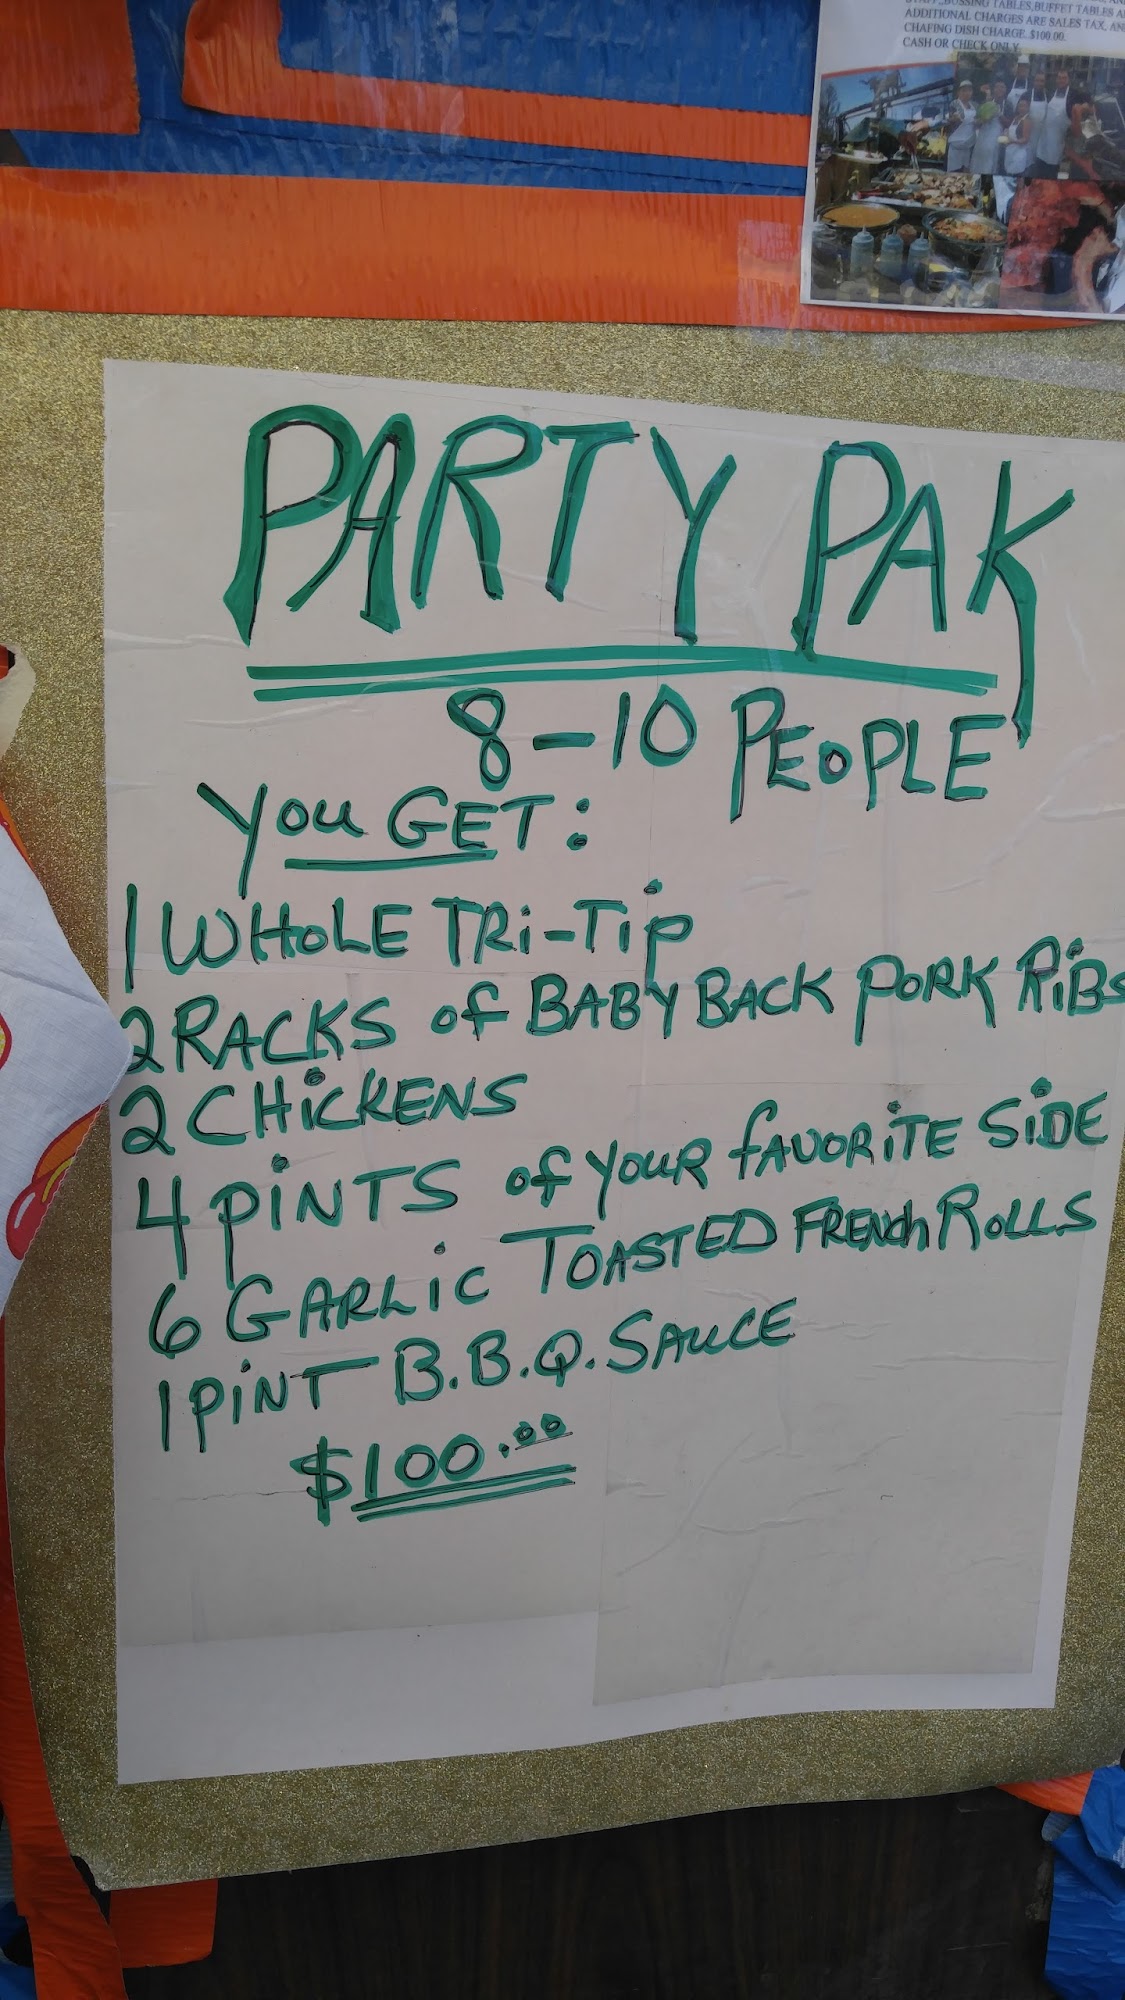 BUSSING TABLES, BUFFET TABLES
ADDITIONAL CHARGES ARE SALES TAX,
CHAFING DISH CHARGE. $100.00.
CASH OR CHECK ONLY
PARTY PAK
8-10 PEOPLE
You GET:
1 WHOLE TRi-Tip
2 RACKS of BABY BACK PORK RiBS
2 CHiCKENS
4 PiNTS of YOUR fAVORiTE SiDE
6 GARLiC TOASTED FRENCh ROLLS
1 PiNT B.B.Q. SAUCE
$100.00